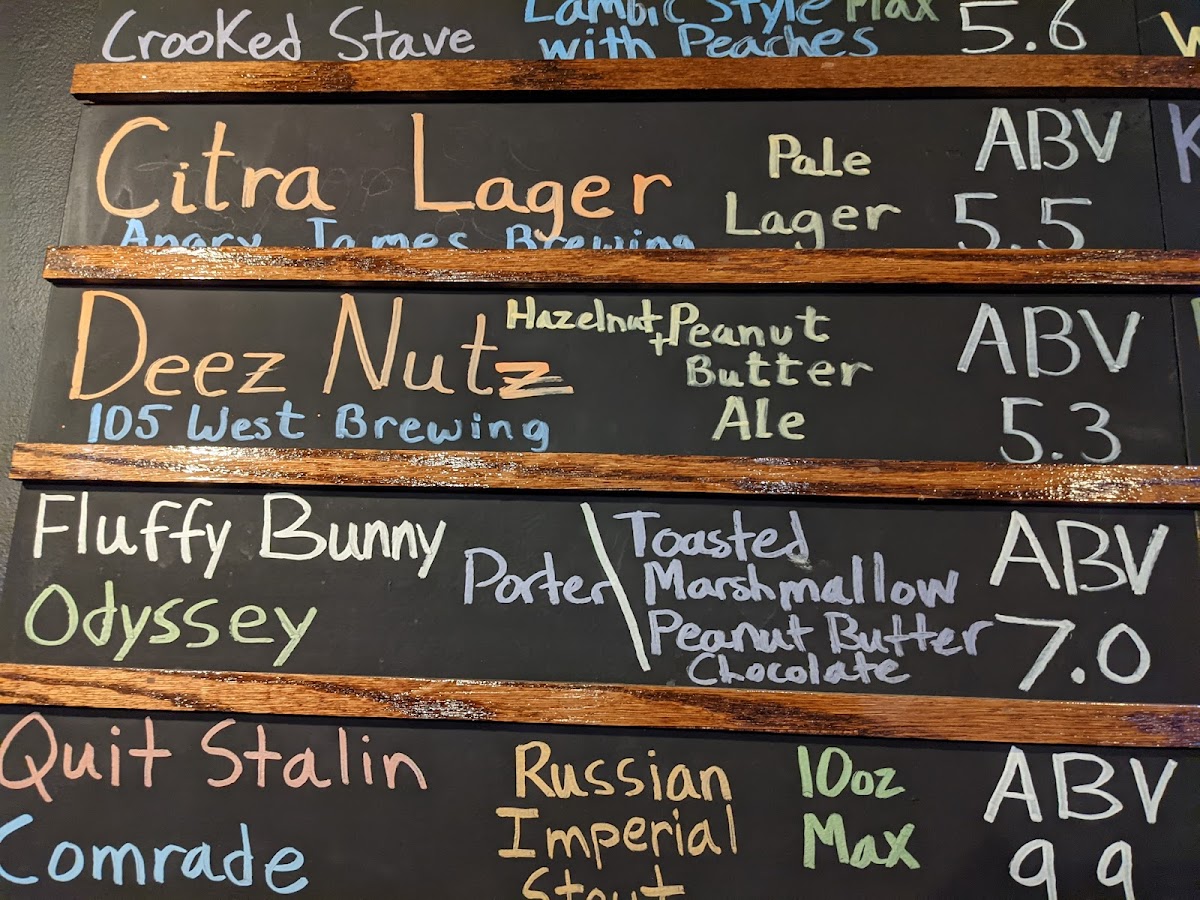 Crooked Stave
Lambic Style Max
with Peaches
5.6
Citra Lager
Angry James Brewing
Pale
Lager
ABV
5.5
Deez Nutz
105 West Brewing
Hazelnut + Peanut
Butter
Ale
ABV
5.3
Fluffy Bunny
Odyssey
Porter
Toasted
Marshmallow
Peanut Butter
Chocolate
ABV
7.0
Quit Stalin
Comrade
Russian
Imperial
Stout
10oz
Max
ABV
9.9